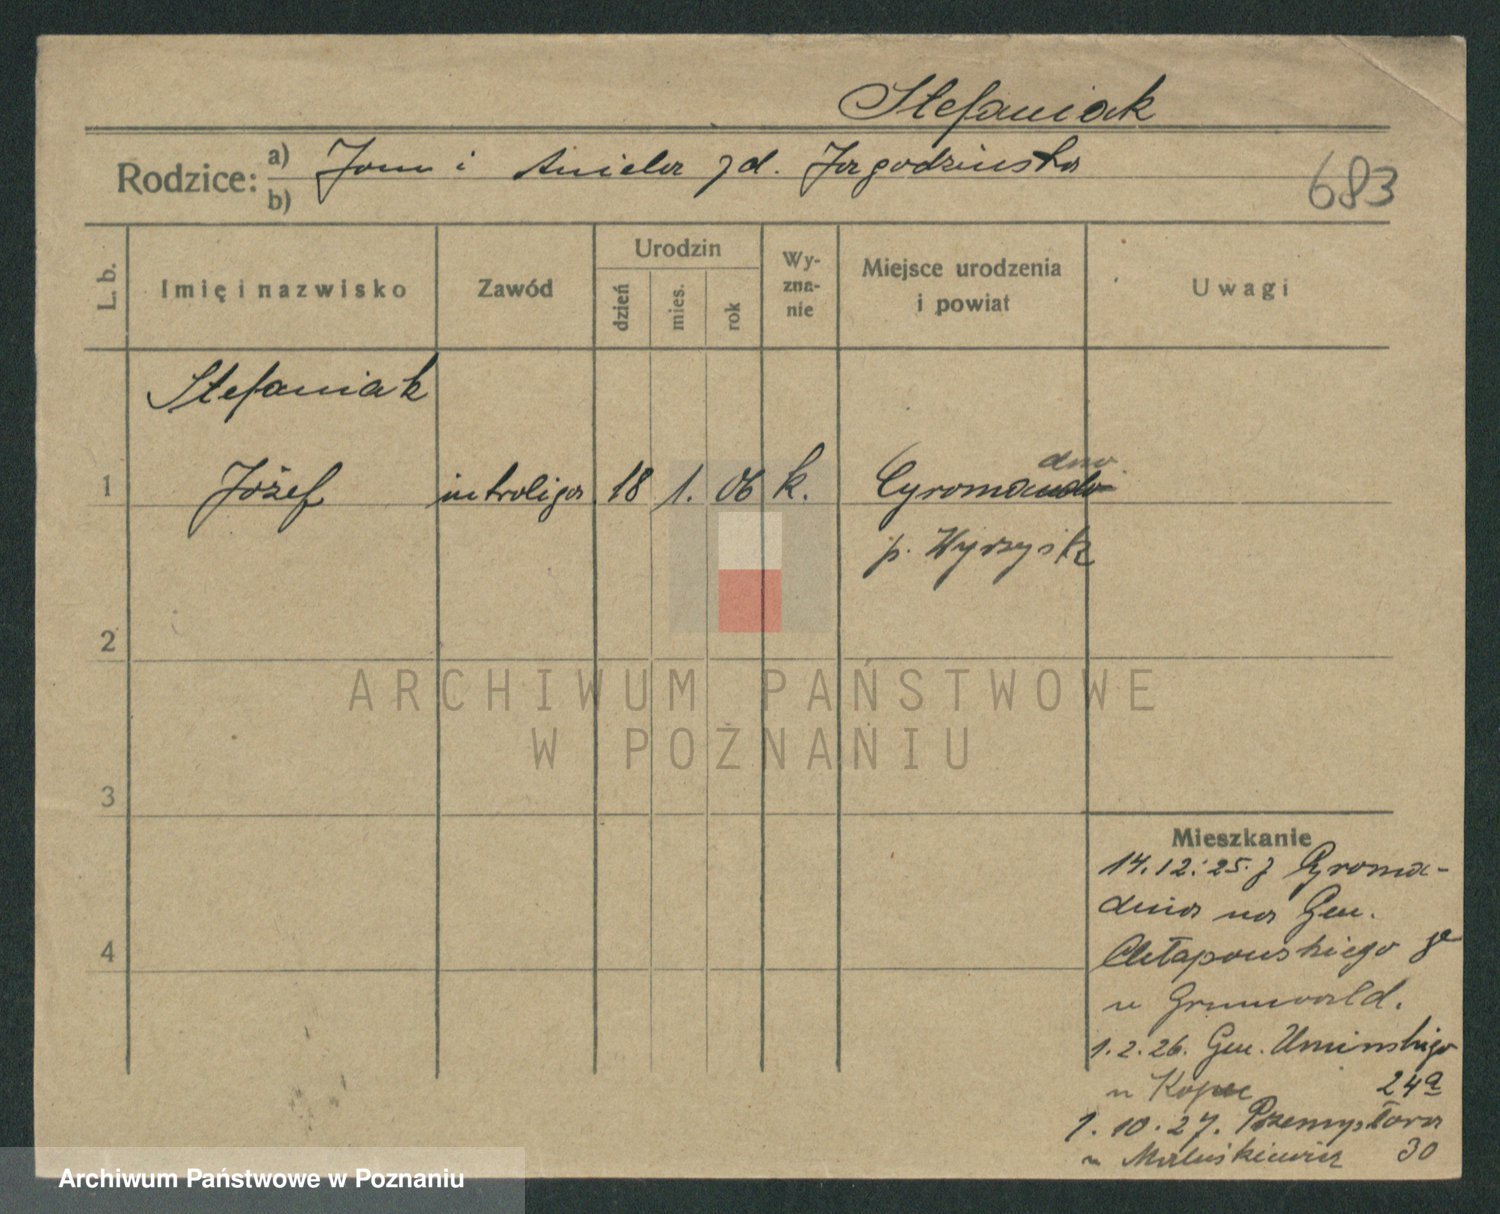 Stefaniak
Rodzice: a) Jan i Aniela zd. Jagodzińska
b)
683
L. b.
Imię i nazwisko
Zawód
Urodzin
dzień
mies.
rok
Wy-
zna-
nie
Miejsce urodzenia
i powiat
Uwagi
Stefaniak
dno
1 Józef introliga 18 1. 06 k. Gromando
p. Wyrzysk
2
ARCHIWUM PAŃSTWOWE
W POZNANIU
3
Mieszkanie
14.12.25. z Groma-
dna na Gen.
4
Chłapowskiego
u Grunwald.
1.2.26. Gen. Umińskiego
u Kopec 24a
1.10.27. Przemysłowa
u 30
Archiwum Państwowe w Poznaniu